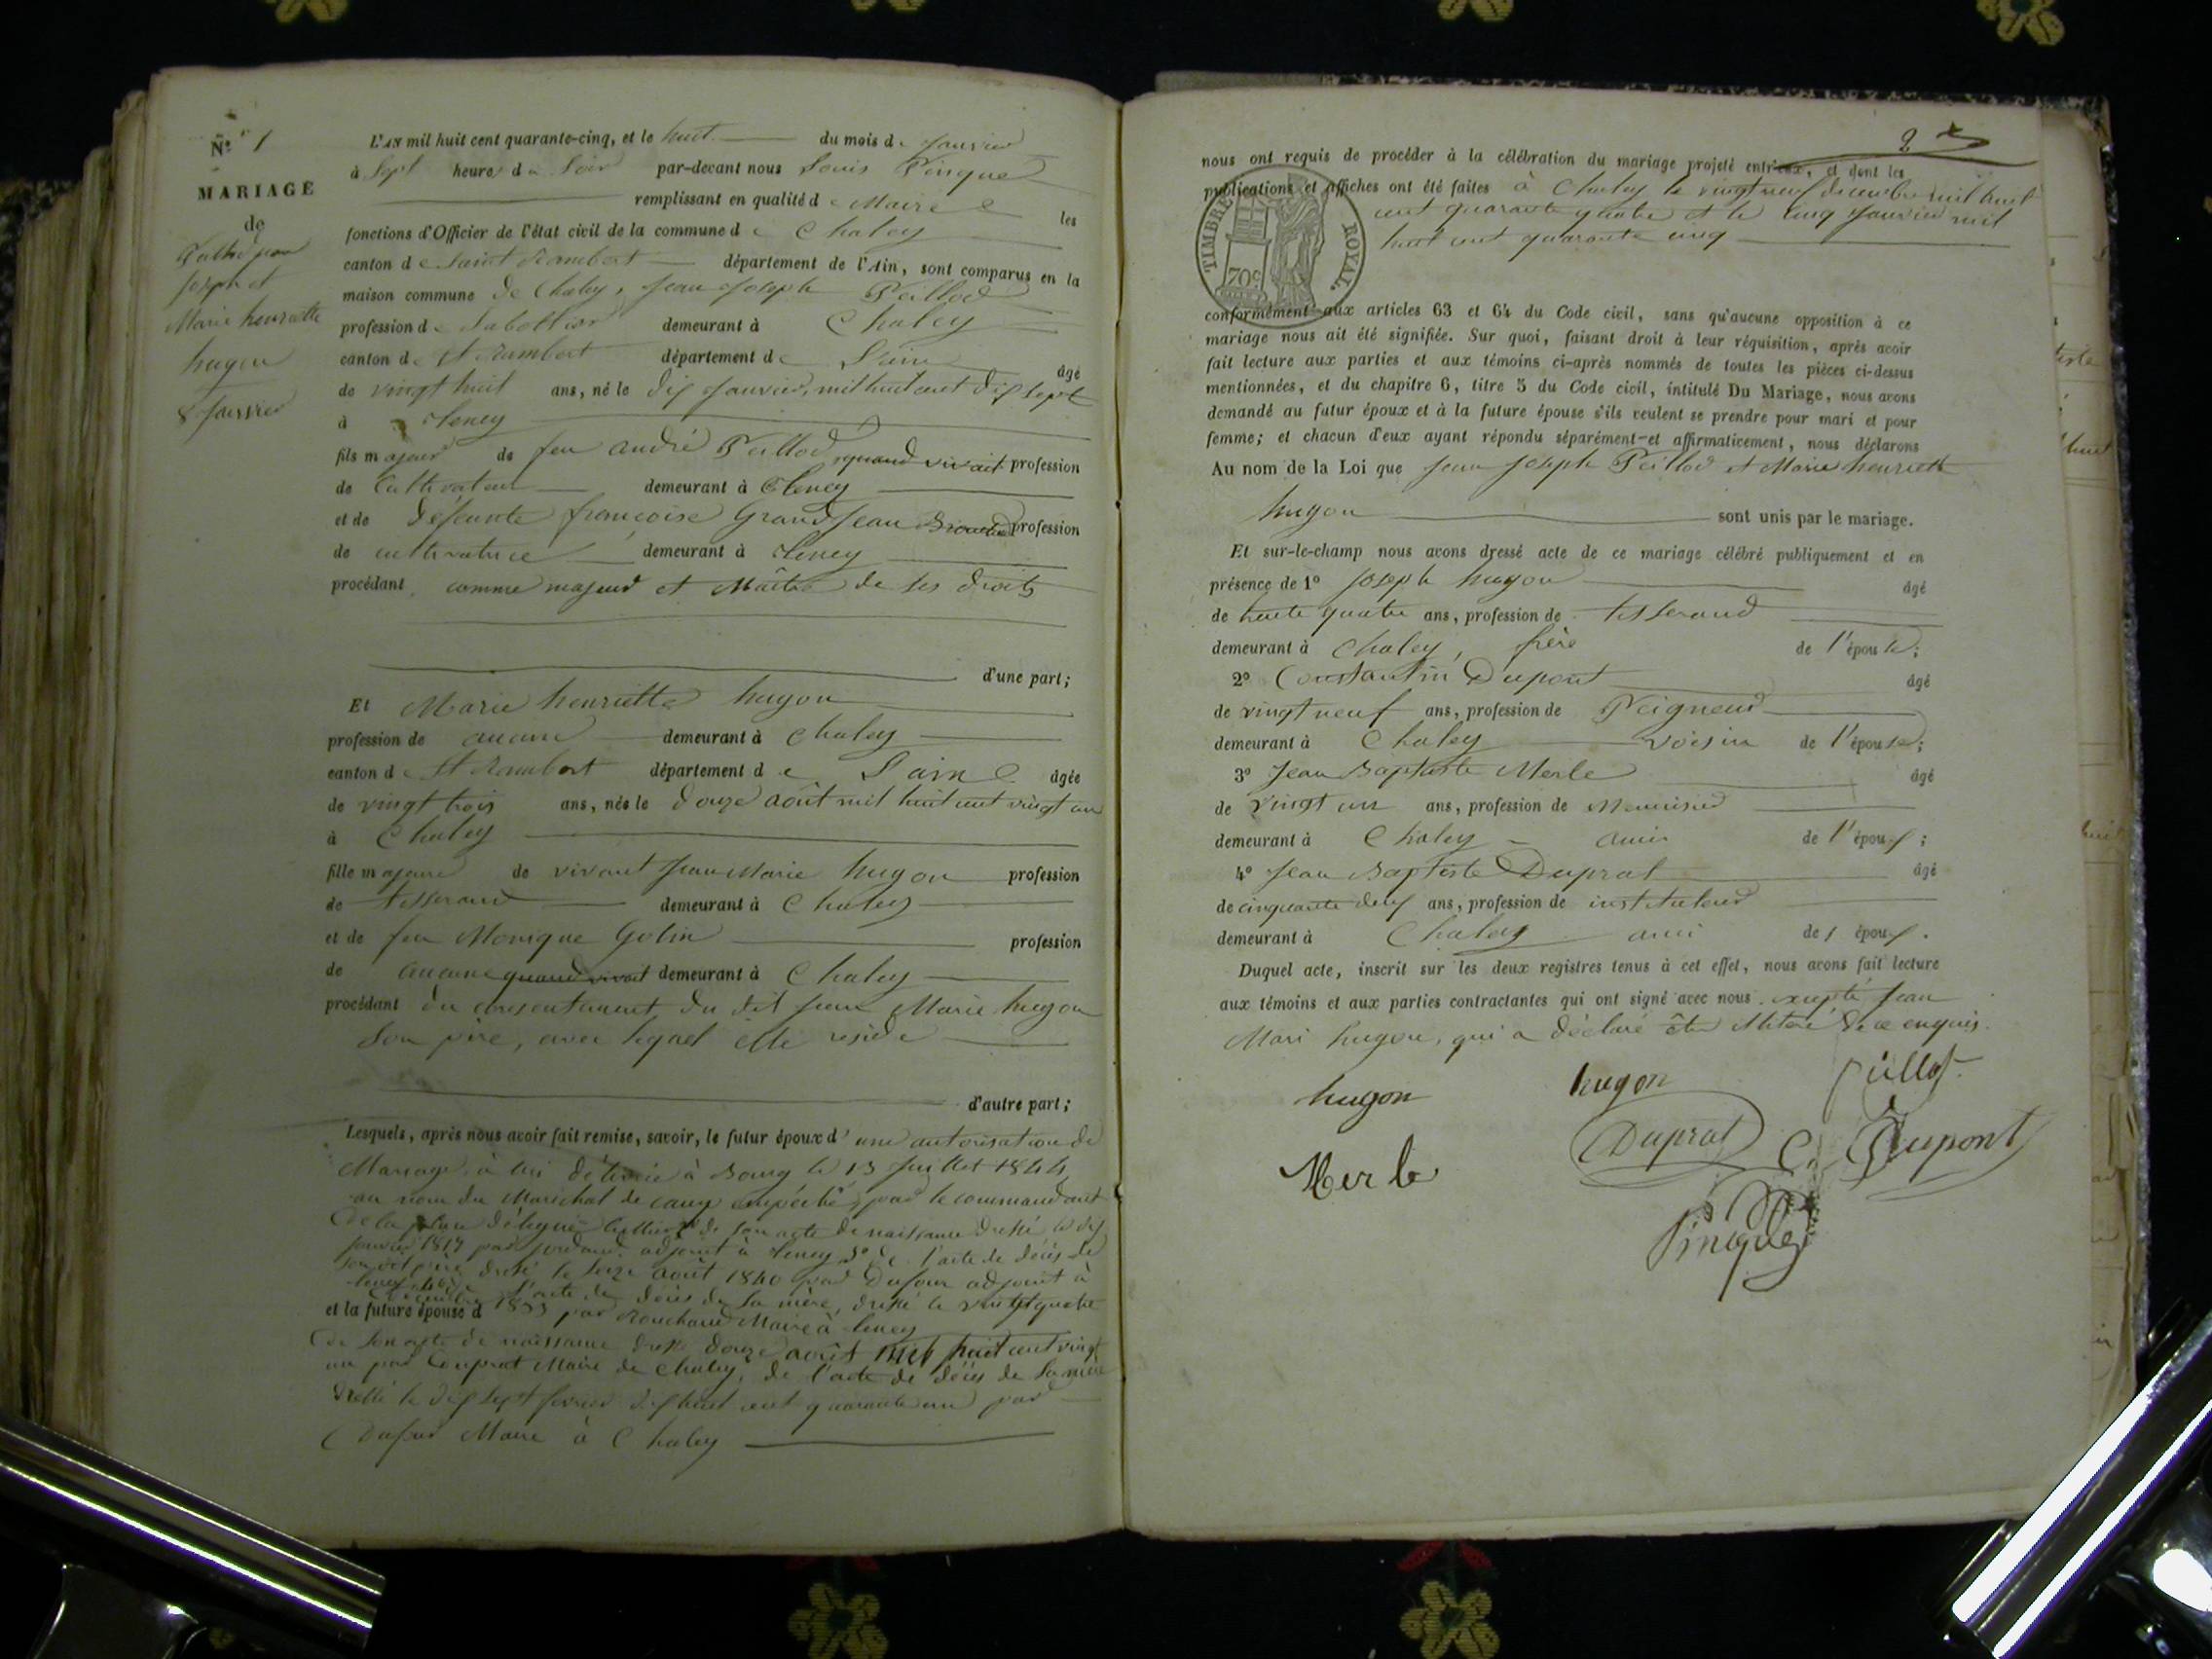 N° 1
MARIAGE
de
joseph et
Marie henriette
hugon
8 Janvier
L'AN mil huit cent quarante-cinq, et le huit du mois de Janvier
à Sept heures du Soir par-devant nous Louis Pingue
remplissant en qualité de Maire les
fonctions d'Officier de l'état civil de la commune de Chaley
canton de Saint Rambert département de l'Ain, sont comparus en la
maison commune de Chaley, Jean Joseph Peillod
profession de demeurant à Chaley
canton de St Rambert département de L'ain âgé
de vingt huit ans, né le dix Janvier, mil huit cent dix sept
à Teney
fils majeur de feu andré Peillod quand vivait profession
de Cultivateur demeurant à Teney
et de défeunte françoise GrandJean profession
de cultivatrice demeurant à Teney
procédant comme majeur et Maître de ses droits
d'une part;
Et Marie henriette hugon
profession de aucune demeurant à Chaley
canton de St Rambert département de L'ain âgée
de vingt trois ans, née le douze août mil huit cent vingt un
à Chaley
fille majeure de vivant Jean Marie hugon profession
de tisserand demeurant à Chaley
et de feu Monique Golin profession
de aucune quand vivait demeurant à Chaley
procédant du consentement du dit Jean Marie hugon
Son père, avec lequel elle réside
d'autre part;
Lesquels, après nous avoir fait remise, savoir, le futur époux d'une autorisation de
Mariage à lui délivrée à Bourg le 13 Juillet 1844
au nom du Maréchal de camp empêché, par le commandant
de la délégué de son acte de naissance dressé le dix
Janvier 1817 par adjoint à Teney de l'acte de décès de
son dit père dressé le Seize août 1840 par Dufour adjoint à
Teney l'acte de décès de Sa mère, dressé le vingt quatre
1833 par Maire à Teney
et la future épouse d
de Son acte de naissance dressé douze août mil huit cent vingt
un par Duprat Maire de Chaley, de l'acte de décès de Sa mère
dressé le dix Sept fevrier dix huit cent quarante un par
Maire à Chaley
2
nous ont requis de procéder à la célébration du mariage projeté entr'eux, et dont les
publications et affiches ont été faites à Chaley le vingt neuf decembre mil huit
cent quarante quatre et le cinq Janvier mil
huit cent quarante cinq
TIMBRE ROYAL.
70c
conformément aux articles 63 et 64 du Code civil, sans qu'aucune opposition à ce
mariage nous ait été signifiée. Sur quoi, faisant droit à leur réquisition, après avoir
fait lecture aux parties et aux témoins ci-après nommés de toutes les pièces ci-dessus
mentionnées, et du chapitre 6, titre 5 du Code civil, intitulé Du Mariage, nous avons
demandé au futur époux et à la future épouse s'ils veulent se prendre pour mari et pour
femme; et chacun d'eux ayant répondu séparément et affirmativement, nous déclarons
Au nom de la Loi que Jean Joseph Peillod et Marie henriette
hugon sont unis par le mariage.
Et sur-le-champ nous avons dressé acte de ce mariage célébré publiquement et en
présence de 1° Joseph hugon âgé
de trente quatre ans, profession de tisserand
demeurant à Chaley, frère de l'épouse;
2° Constantin Dupont âgé
de vingt neuf ans, profession de Peigneur
demeurant à Chaley voisin de l'épouse;
3° Jean Baptiste Merle âgé
de vingt un ans, profession de Menuisier
demeurant à Chaley ami de l'époux;
4° Jean Baptiste Duprat âgé
de cinquante deux ans, profession de instituteur
demeurant à Chaley ami de l époux.
Duquel acte, inscrit sur les deux registres tenus à cet effet, nous avons fait lecture
aux témoins et aux parties contractantes qui ont signé avec nous. excepté Jean
Mari hugon, qui a déclaré être illitéré de ce enquis.
hugon hugon peillod
Merle Duprat C. Dupont
Pingue